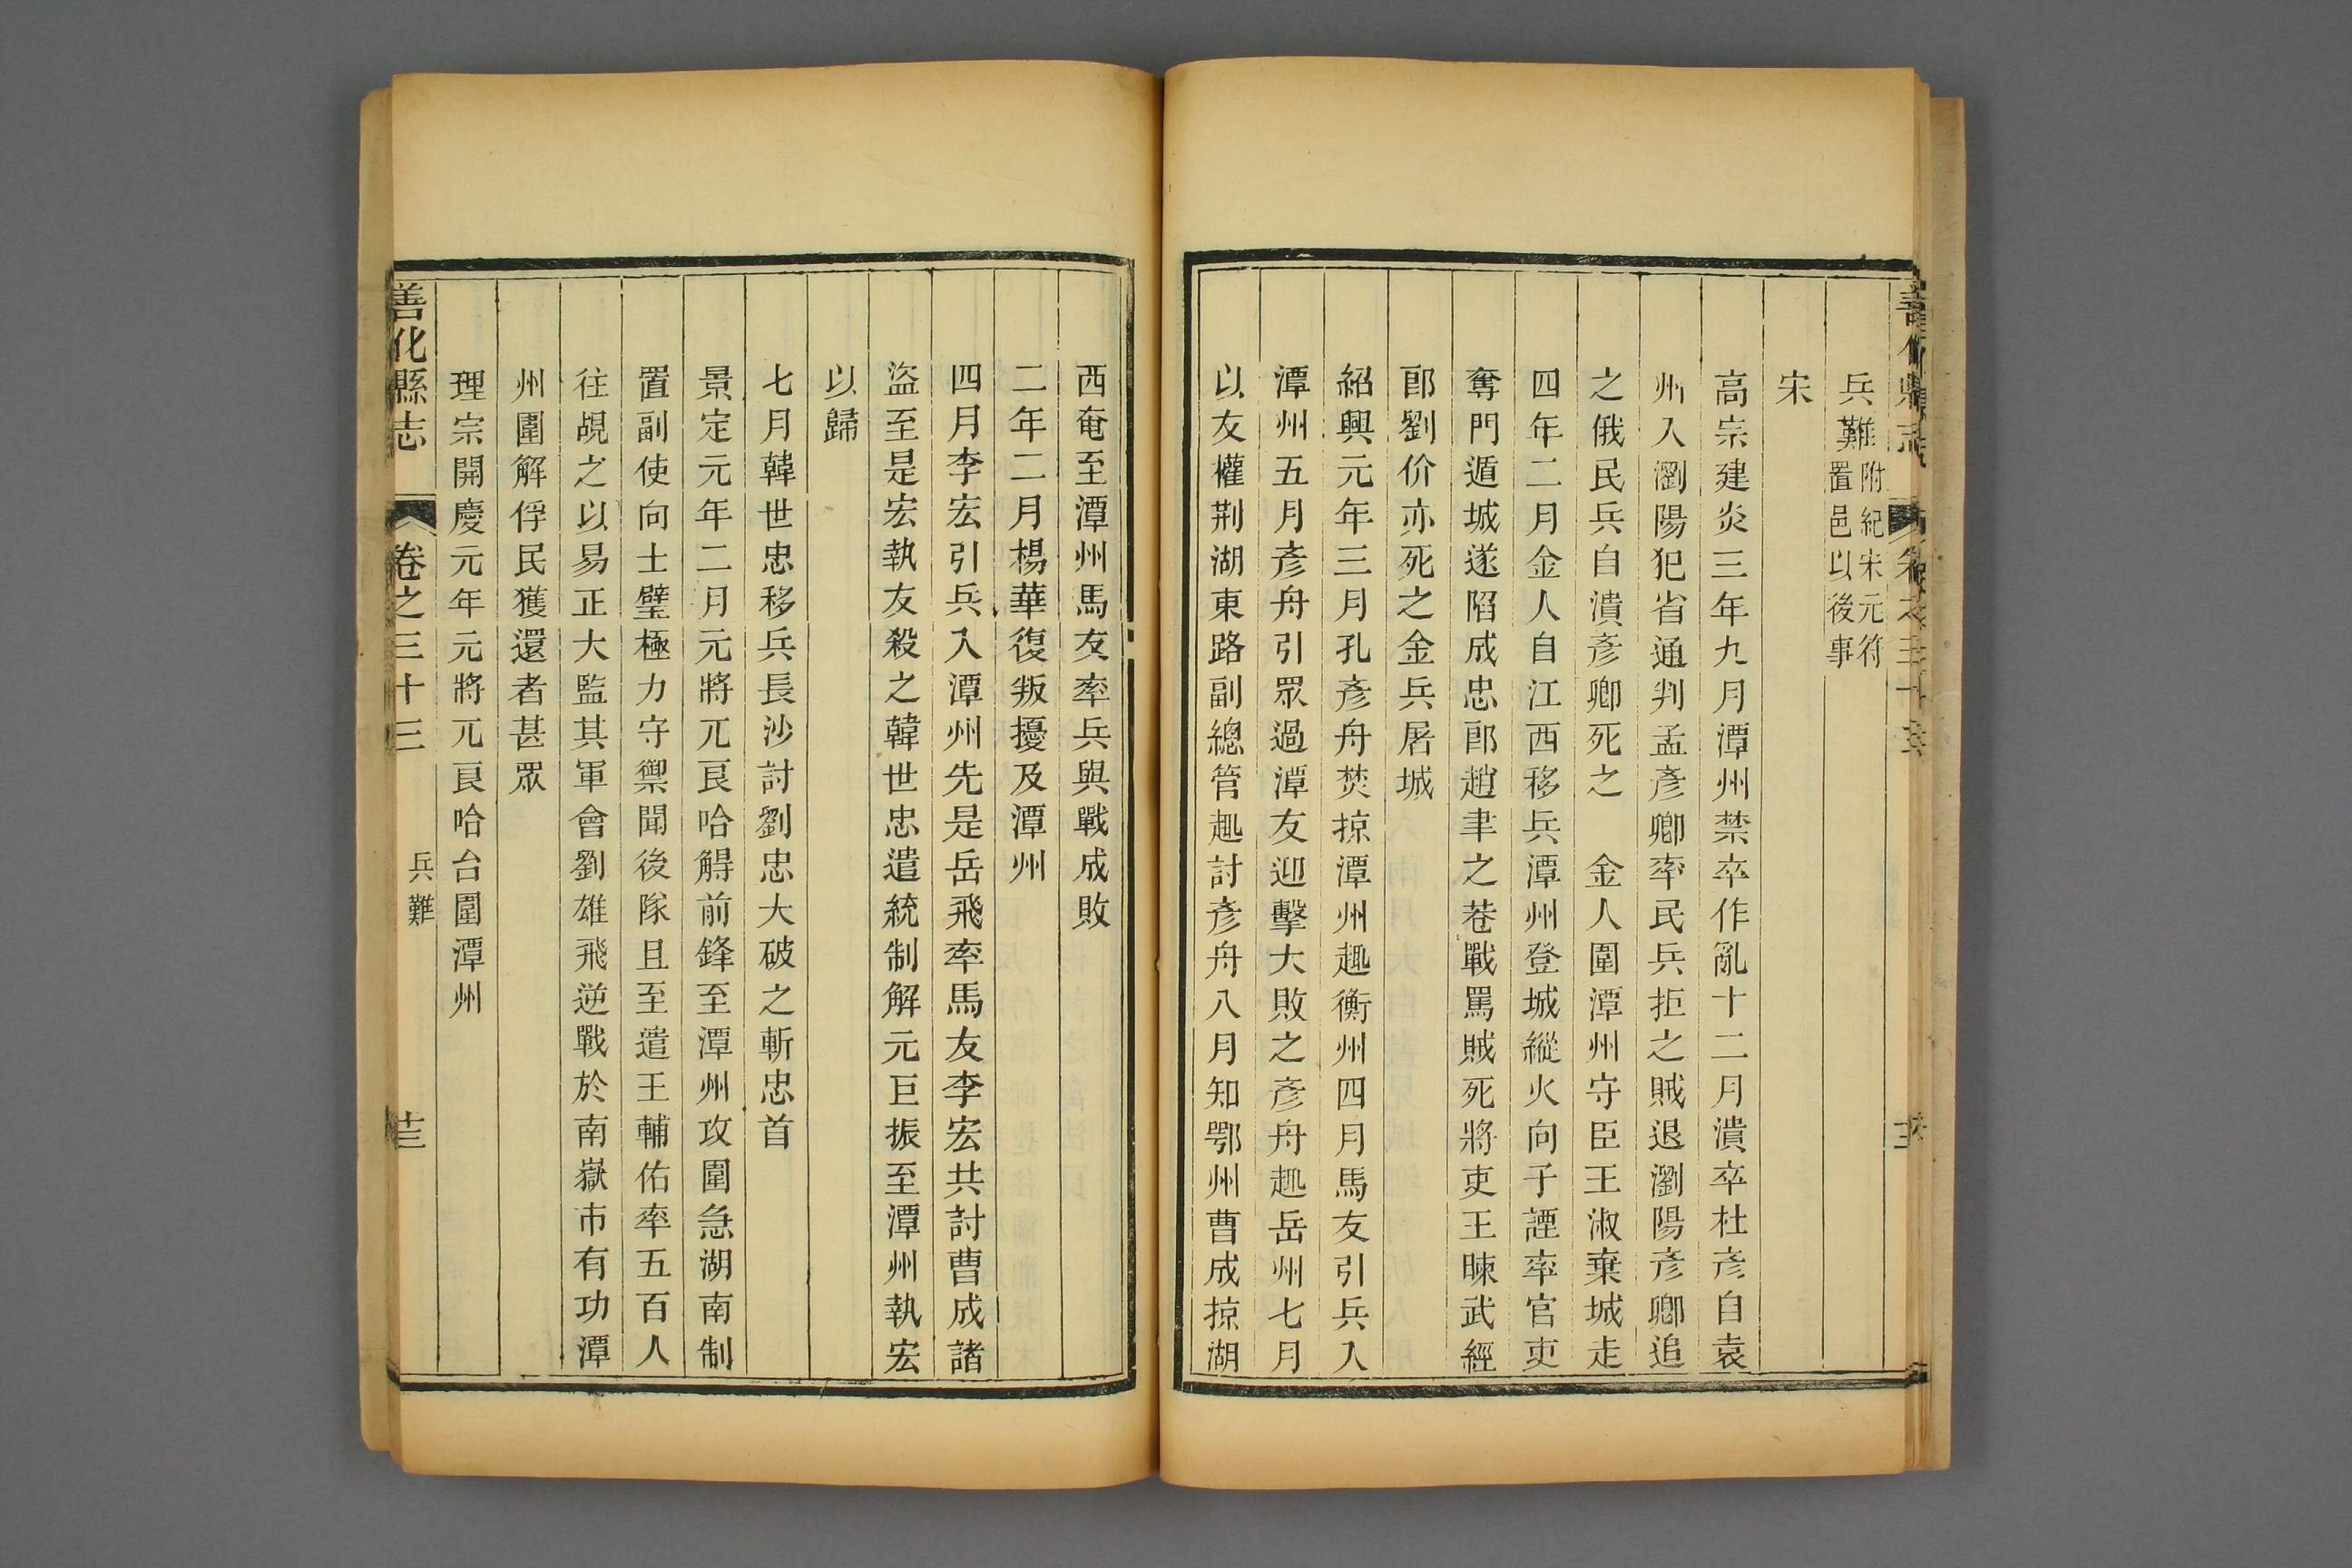 兵難附紀宋元符
置邑以後事
宋
高宗建炎三年九月潭州禁卒作亂十二月潰卒杜彥自袁
州入瀏陽犯省通判孟彥卿率民兵拒之賊退瀏陽彥卿追
之俄民兵自潰彥卿死之　金人圍潭州守臣王淑棄城走
四年二月金人自江西移兵潭州登城縱火向子諲率官吏
奪門遁城遂陷成忠郎趙聿之巷戰罵賊死將吏王暕武經
郎劉价亦死之金兵屠城
紹興元年三月孔彥舟焚掠潭州趣衡州四月馬友引兵入
潭州五月彥舟引眾過潭友迎擊大敗之彥舟趣岳州七月
以友權荆湖東路副總管趣討彥舟八月知鄂州曹成掠湖
西奄至潭州馬友率兵與戰成敗
二年二月楊華復叛擾及潭州
四月李宏引兵入潭州先是岳飛率馬友李宏共討曹成諸
盜至是宏執友殺之韓世忠遣統制解元巨振至潭州執宏
以歸
七月韓世忠移兵長沙討劉忠大破之斬忠首
景定元年二月元將兀良哈䚟前鋒至潭州攻圍急湖南制
置副使向士璧極力守禦聞後隊且至遣王輔佑率五百人
往覘之以易正大監其軍會劉雄飛逆戰於南嶽市有功潭
州圍解俘民獲還者甚眾
理宗開慶元年元將兀良哈台圍潭州
善化縣志
卷之三十三
兵難